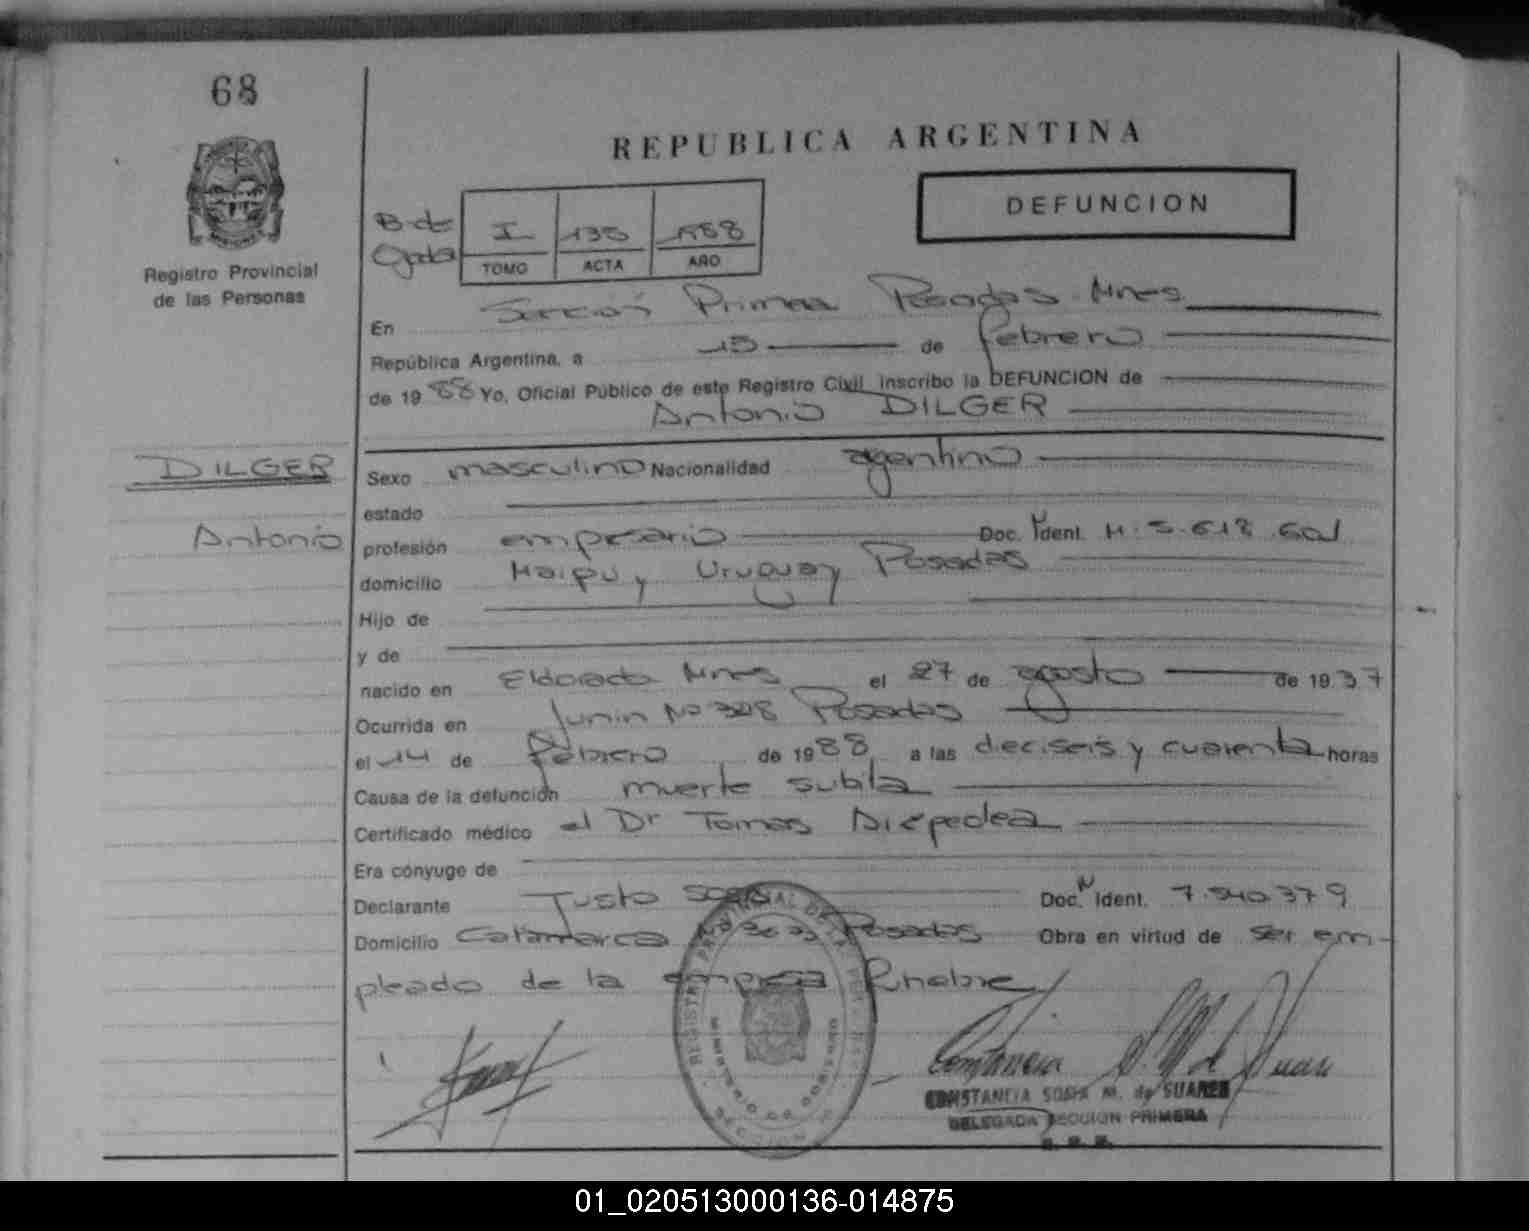 68
REPUBLICA ARGENTINA
DEFUNCION
Registro Provincial
de las Personas
B. de
I 135 1988
TOMO ACTA AÑO
En Sección Primera Posadas Mnes
República Argentina, a 15 de febrero
de 1988 Yo, Oficial Público de este Registro Civil inscribo la DEFUNCION de
Antonio DILGER
DILGER
Antonio
Sexo masculino Nacionalidad argentino
estado
profesión empresario Doc. Ident. M. 5.618.601
domicilio Maipu y Uruguay Posadas
Hijo de
y de
nacido en Eldorado Mnes el 27 de agosto de 1937
Ocurrida en Junin Nº 328 Posadas
el 14 de febrero de 1988 a las deciseis y cuarenta horas
Causa de la defunción muerte subita
Certificado médico el Dr Tomas
Era cónyuge de
Declarante Justo Doc. Ident. 7.540.379
Domicilio Catamarca Posadas Obra en virtud de ser em-
pleado de la empresa
REGISTRO PROVINCIAL DE LAS PERSONAS
MINISTERIO DE GOBIERNO
CONSTANCIA SOFIA M. de SUAREZ
DELEGADA SECCION PRIMERA
01_020513000136-014875